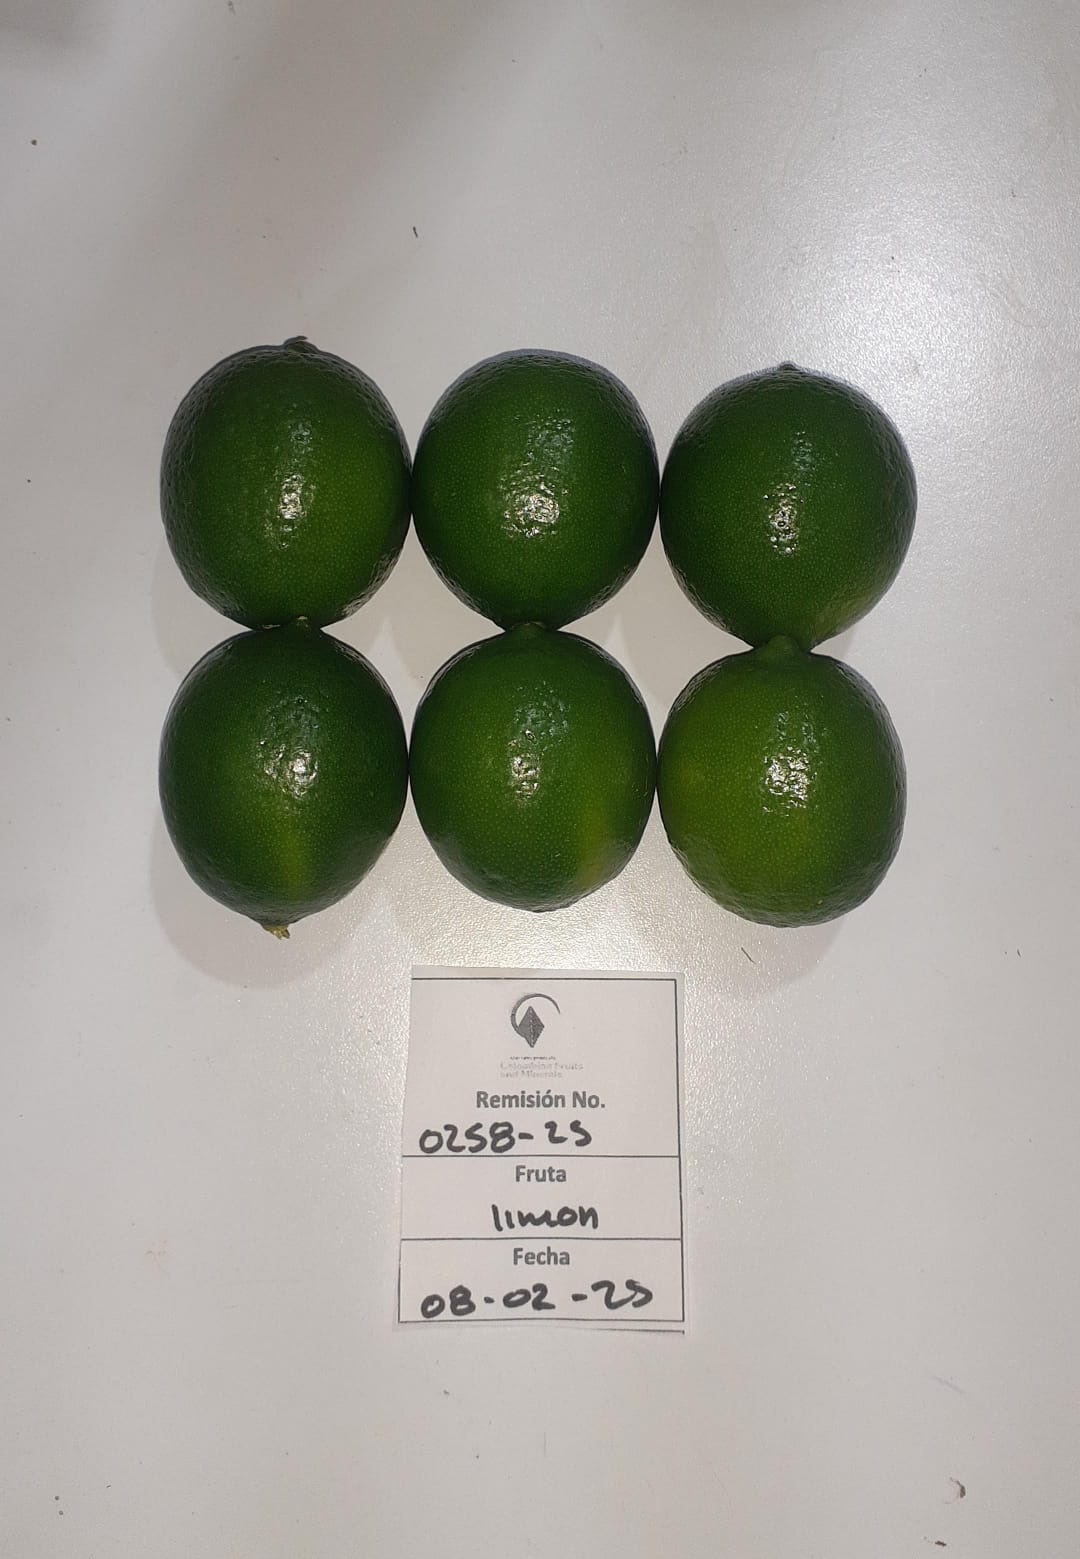 Colombian Fruits
and Minerals
Remisión No.
0258-25
Fruta
limon
Fecha
08-02-25